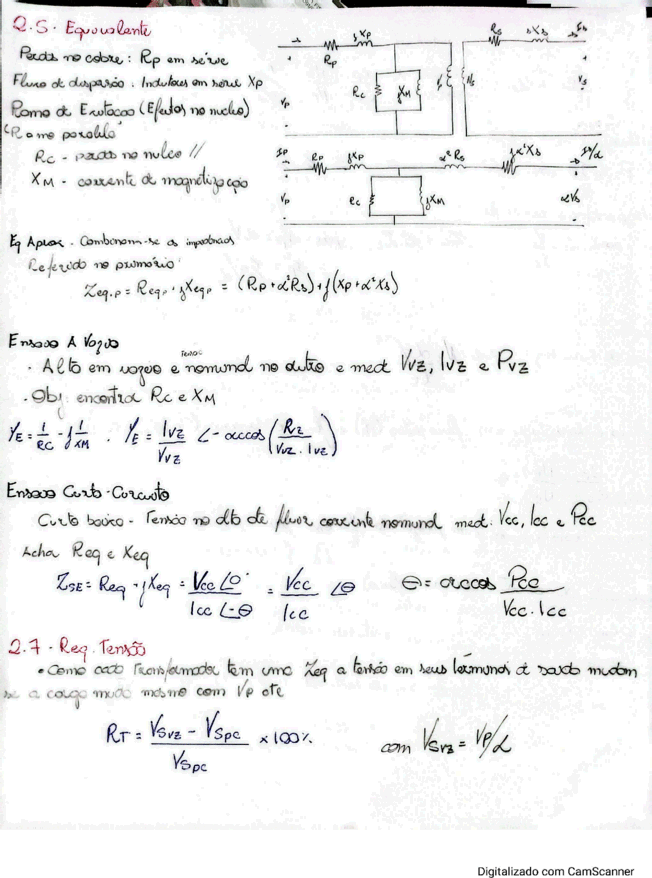 2.5 - Equivalente
Perdas no cobre: Rp em série
Fluxo de dispersão: Indutores em série Xp
Ramo de Excitação (Efeitos no núcleo)
"Ramo paralelo"
Rc - perdas no núcleo //
XM - corrente de magnetização
Rp jXp Rc jXM Vp Rs jXs Is Vs Ns
Ip Rp jXp α²Rs jα²Xs Is/α
Vp Rc jXM αVs
Eq Aprox - Combinam-se as impedâncias
Referido no primário:
Zeq.p = Reqp + jXeqp = (Rp + α²Rs) + j(Xp + α²Xs)
Ensaio A Vazio
• Alta em vazio e tensão nominal no outro e med VVZ, IVZ e PVZ
• Obj: encontra Rc e XM
YE = 1/RC - j 1/XM . YE = IVZ/VVZ ∠-arccos(PVZ/VVZ . IVZ)
Ensaio Curto-Circuito
Curto baixo - Tensão no alto até fluir corrente nominal med. Vcc, Icc e Pcc
Acha Req e Xeq
ZSE = Req + jXeq = Vcc∠0°/Icc∠-θ = Vcc/Icc ∠θ θ = arccos Pcc/Vcc . Icc
2.7 - Reg. Tensão
• Como cada Transformador tem uma Zeq a tensão em seus terminais de saída mudam
se a carga muda mesmo com Vp cte
RT = VSvz - VSpc/VSpc × 100% com VSvz = Vp/α
Digitalizado com CamScanner